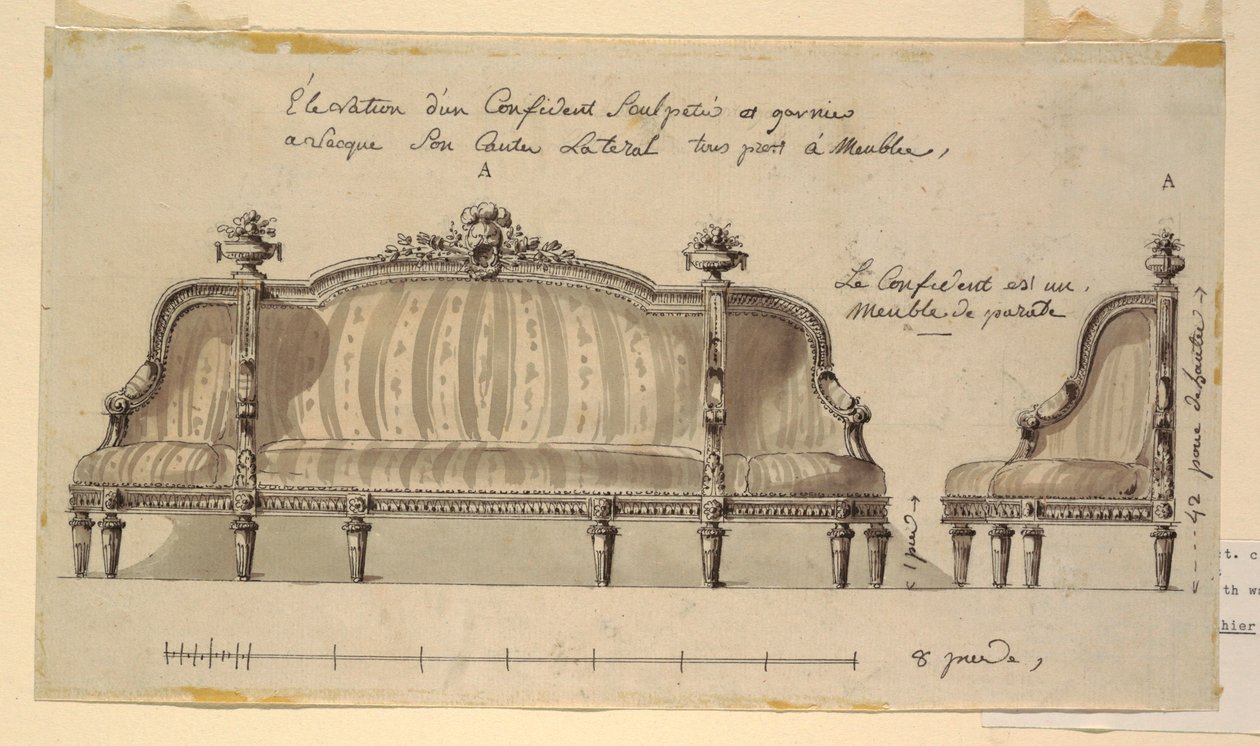 Élevation d'un Confident Sculpeté et garnie
avacque Son Cautée Lateral tous prest à Meublée,
A
A
Le Confident est un,
Meuble de parade
42 pouce de hauteu
1 pied
8 pieds,
ct. c
th wa
hier